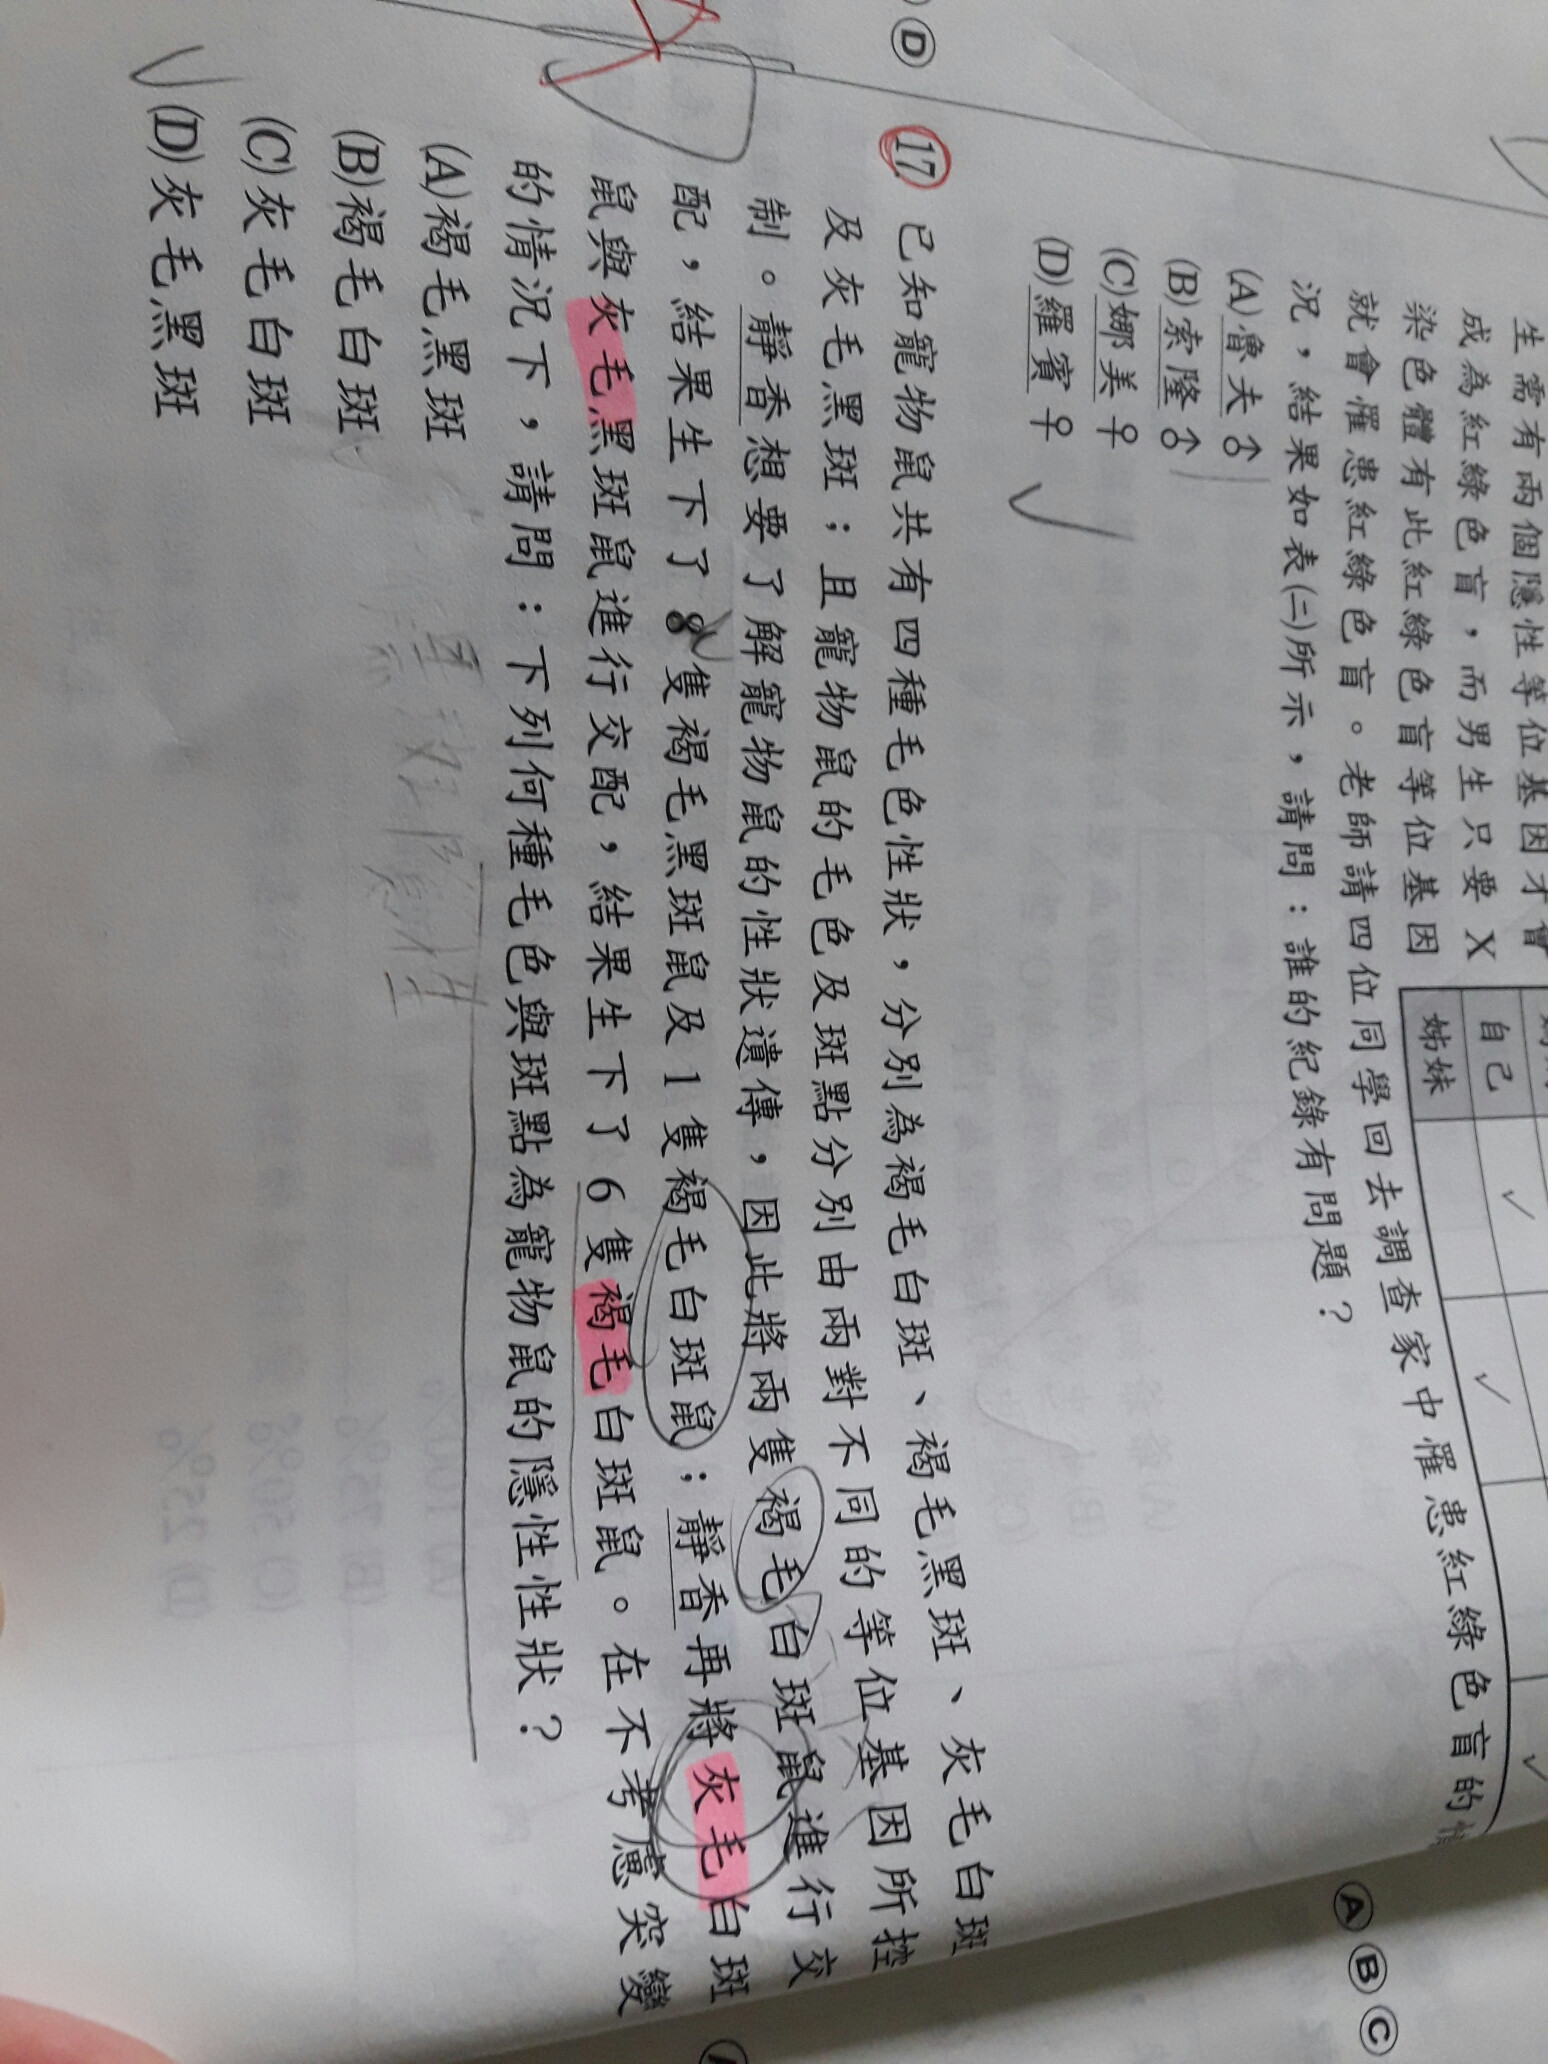 生需有兩個隱性等位基因才會
成為紅綠色盲，而男生只要 X
染色體有此紅綠色盲等位基因
就會罹患紅綠色盲。老師請四位同學回去調查家中罹患紅綠色盲的情
況，結果如表(二)所示，請問：誰的紀錄有問題？
自己
姊妹
(A)魯夫♂
(B)索隆♂
(C)娜美♀
(D)羅賓♀
Ⓓ
17 已知寵物鼠共有四種毛色性狀，分別為褐毛白斑、褐毛黑斑、灰毛白斑
及灰毛黑斑；且寵物鼠的毛色及斑點分別由兩對不同的等位基因所控
制。靜香想要了解寵物鼠的性狀遺傳，因此將兩隻褐毛白斑鼠進行交
配，結果生下了 8 隻褐毛黑斑鼠及 1 隻褐毛白斑鼠；靜香再將灰毛白斑
鼠與灰毛黑斑鼠進行交配，結果生下了 6 隻褐毛白斑鼠。在不考慮突變
的情況下，請問：下列何種毛色與斑點為寵物鼠的隱性性狀？
(A)褐毛黑斑
(B)褐毛白斑
(C)灰毛白斑
(D)灰毛黑斑
黑斑隱性
Ⓐ Ⓑ Ⓒ